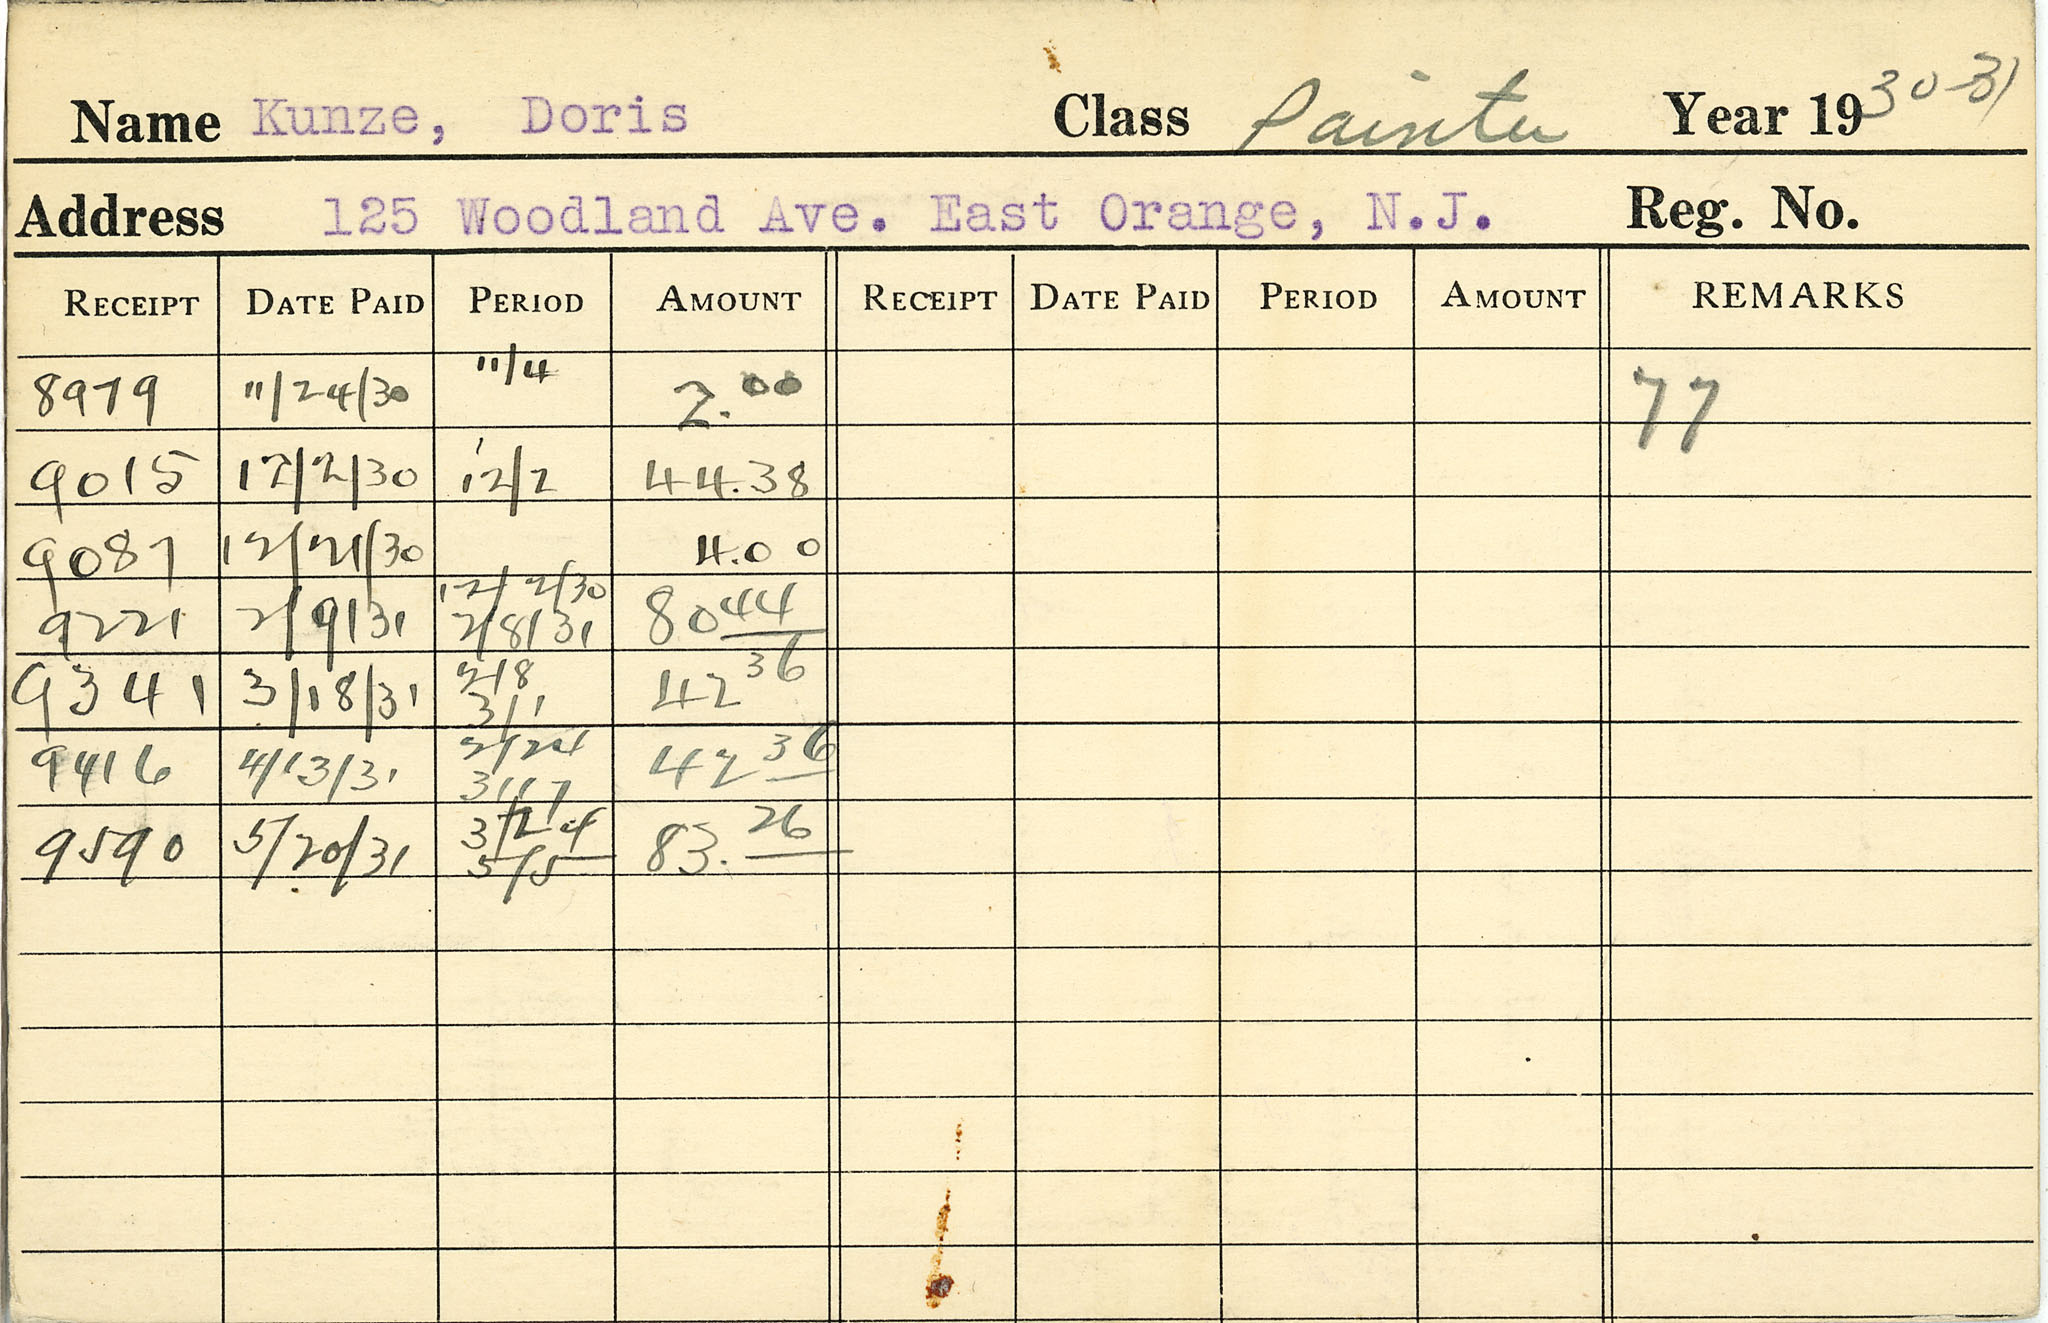 Name Kunze, Doris Class Painter Year 1930-31
Address 125 Woodland Ave. East Orange, N.J. Reg. No.
RECEIPT DATE PAID PERIOD AMOUNT RECEIPT DATE PAID PERIOD AMOUNT REMARKS
8979 11/24/30 11/4 2.00 77
9015 12/2/30 12/2 44.38
9087 12/21/30 4.00
9221 2/9/31 12/2/30 2/8/31 80 44
9341 3/18/31 2/8 3/1 42 36
9416 4/13/31 2/24 3/17 42 36
9590 5/20/31 3/24 5/5 83.26